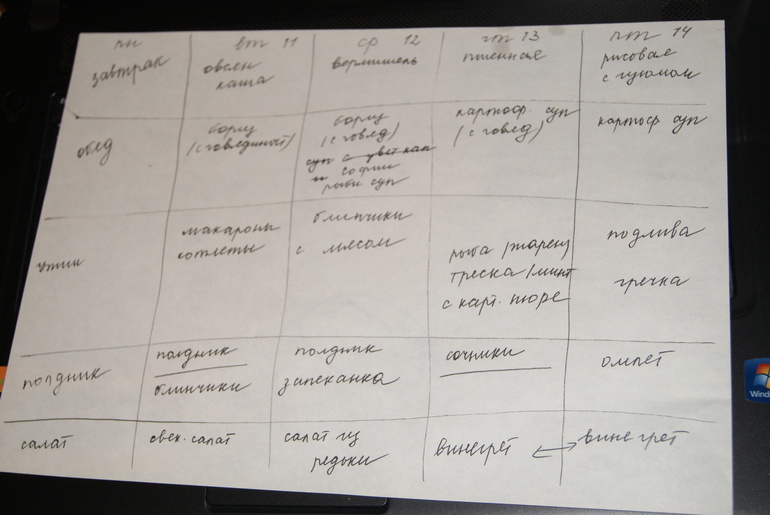 пн вт 11 ср 12 чт 13 пт 14
завтрак овсян каша вермишель пшенная рисовая с изюмом
обед борщ (с говядиной) борщ (с говяд) суп с цвет кап софии рыбн суп картоф суп (с говяд) картоф суп
ужин макароны котлеты блинчики с мясом рыба (жарен) треска/минт с карт. пюре подлива гречка
полдник полдник блинчики полдник запеканка сочники омлет
салат свек. салат салат из редьки винегрет винегрет
Wind